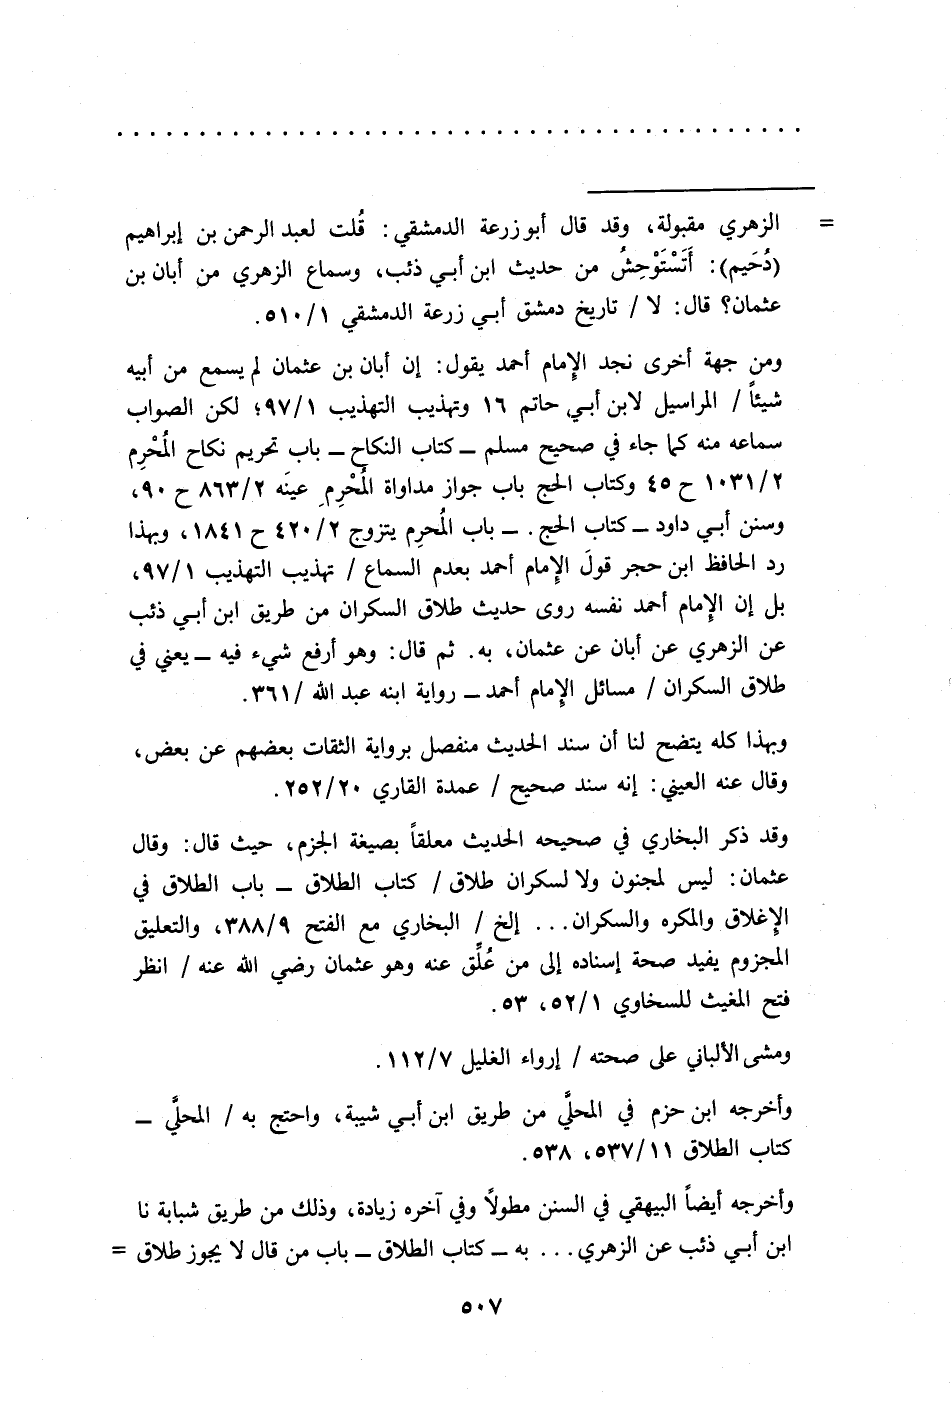 = الزهري مقبولة، وقد قال أبو زرعة الدمشقي: قُلت لعبد الرحمن بن إبراهيم
(دُحَيم): أَتَسْتَوْحِشُ من حديث ابن أبي ذئب، وسماع الزهري من أبان بن
عثمان؟ قال: لا / تاريخ دمشق أبي زرعة الدمشقي ٥١٠/١.
ومن جهة أخرى نجد الإمام أحمد يقول: إن أبان بن عثمان لم يسمع من أبيه
شيئاً / المراسيل لابن أبي حاتم ١٦ وتهذيب التهذيب ٩٧/١؛ لكن الصواب
سماعه منه كما جاء في صحيح مسلم ــ كتاب النكاح ــ باب تحريم نكاح المُحْرِم
١٠٣١/٢ ح ٤٥ وكتاب الحج باب جواز مداواة المُحْرِمِ عينَه ٨٦٣/٢ ح ٩٠،
وسنن أبي داود ــ كتاب الحج. ــ باب المُحرِم يتزوج ٤٢٠/٢ ح ١٨٤١، وبهذا
رد الحافظ ابن حجر قولَ الإمام أحمد بعدم السماع / تهذيب التهذيب ٩٧/١،
بل إن الإمام أحمد نفسه روى حديث طلاق السكران من طريق ابن أبي ذئب
عن الزهري عن أبان عن عثمان، به. ثم قال: وهو أرفع شيء فيه ــ يعني في
طلاق السكران / مسائل الإمام أحمد ــ رواية ابنه عبد الله /٣٦١.
وبهذا كله يتضح لنا أن سند الحديث منفصل برواية الثقات بعضهم عن بعض،
وقال عنه العيني: إنه سند صحيح / عمدة القاري ٢٥٢/٢٠.
وقد ذكر البخاري في صحيحه الحديث معلقاً بصيغة الجزم، حيث قال: وقال
عثمان: ليس لمجنون ولا لسكران طلاق / كتاب الطلاق ــ باب الطلاق في
الإغلاق والمكره والسكران... إلخ / البخاري مع الفتح ٣٨٨/٩، والتعليق
المجزوم يفيد صحة إسناده إلى من عُلِّق عنه وهو عثمان رضي الله عنه / انظر
فتح المغيث للسخاوي ٥٢/١، ٥٣.
ومشى الألباني على صحته / إرواء الغليل ١١٢/٧.
وأخرجه ابن حزم في المحلَّي من طريق ابن أبي شيبة، واحتج به / المحلَّي ــ
كتاب الطلاق ٥٣٧/١١، ٥٣٨.
وأخرجه أيضاً البيهقي في السنن مطولاً وفي آخره زيادة، وذلك من طريق شبابة نا
ابن أبي ذئب عن الزهري... به ــ كتاب الطلاق ــ باب من قال لا يجوز طلاق =
٥٠٧